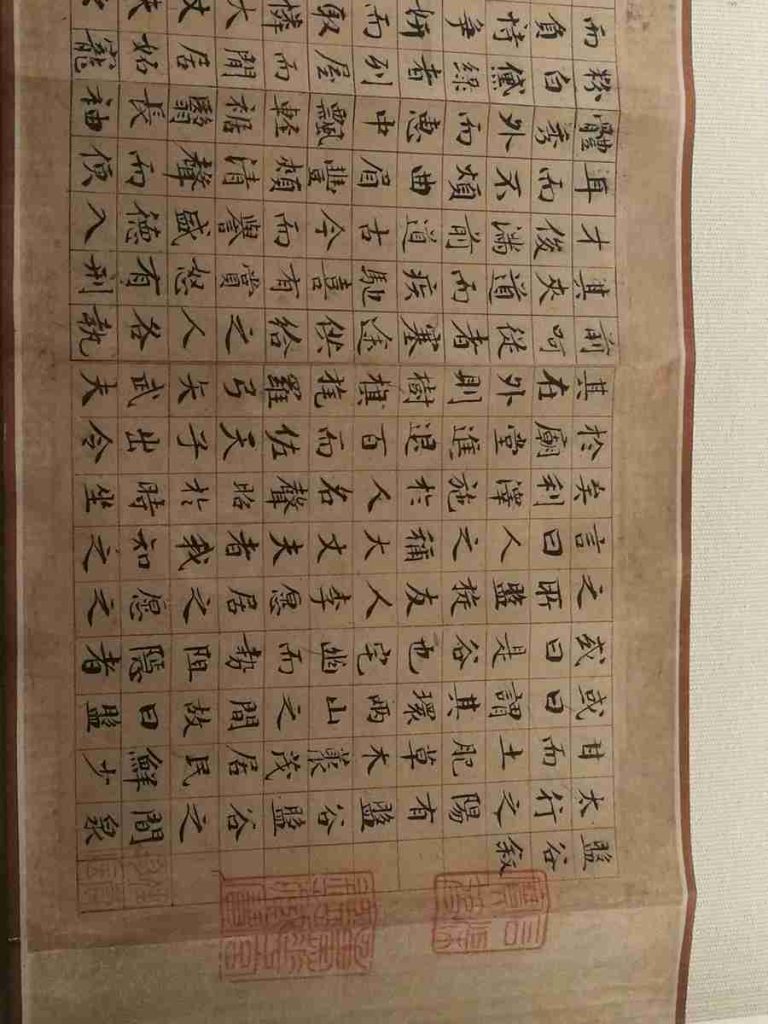 盤谷敘
太行之陽有盤谷盤谷之間泉
甘而土肥草木叢茂居民鮮少
或曰謂其環兩山之間故曰盤
或曰是谷也宅幽而勢阻隱者
之所盤旋友人李愿居之愿之
言曰人之稱大丈夫者我知之
矣利澤施於人名聲昭於時坐
於廟堂進退百而佐天子出令
其在外則樹旗旄羅弓矢武夫
前呵從者塞途供給之人各執
其夾道而疾馳喜有賞怒有刑
才俊滿前道古今而譽盛德入
耳而不煩曲眉豐頰清聲而便
體秀外而惠中飄輕裾翳長袖
粉白黛綠者列屋而閒居妬寵
而負恃爭妍而取憐大丈夫